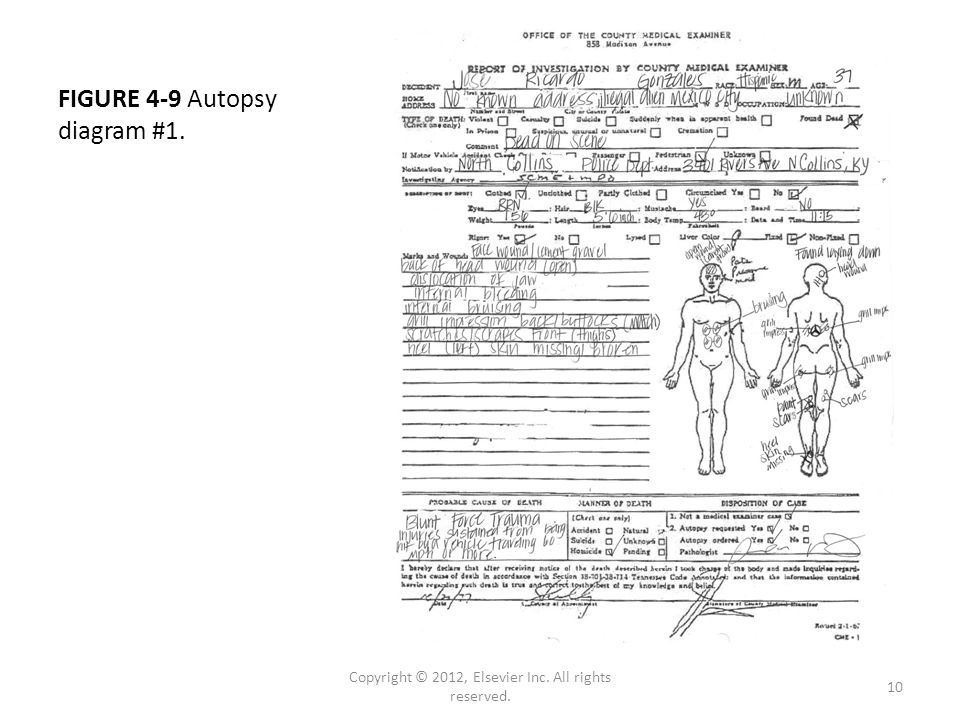 FIGURE 4-9 Autopsy
diagram #1.
OFFICE OF THE COUNTY MEDICAL EXAMINER
858 Madison Avenue
REPORT OF INVESTIGATION BY COUNTY MEDICAL EXAMINER
DECEDENT Jose Ricardo Gonzales RACE Hispanic SEX m AGE 37
First name
HOME ADDRESS No known address, illegal alien Mexico City OCCUPATION unknown
Number and Street City or County
TYPE OF DEATH: Violent Casualty Suicide Suddenly when in apparent health Found Dead
(Check one only) In Prison Suspicious, unusual or unnatural Cremation
Comment Dead on scene
If Motor Vehicle Accident Check Passenger Pedestrian Unknown
Notification by North Collins Police Dept. Address Rivers Ave N Collins, KY
Investigating Agency SCME + MPD
DESCRIPTION OF BODY: Clothed Unclothed Partly Clothed Circumcised Yes No
Eyes BRN : Hair Blk : Mustache yes : Beard No
Weight 156 : Length : Body Temp : Date and Time 11:15
Pounds Fahrenheit
Rigor: Yes No Lysed Livor Color Fixed Non-Fixed
Marks and Wounds Face wound/cement gravel
back of head wound (open)
dislocation of jaw
internal bleeding
internal bruising
grill impression back/buttocks (match)
scratches/scrapes front (thighs)
heel (left) skin missing/broken
Found laying down
head wound
bruising
grill impre
grill impress
grill impre
scars
scars
heel skin missing
PROBABLE CAUSE OF DEATH MANNER OF DEATH DISPOSITION OF CASE
Blunt Force Trauma
injuries sustained from being
hit by a vehicle traveling 60
mph or more.
(Check one only)
Accident Natural
Suicide Unknown
Homicide Pending
1. Not a medical examiner case
2. Autopsy requested Yes No
Autopsy ordered Yes No
Pathologist
I hereby declare that after receiving notice of the death described herein I took charge of the body and made inquiries regard-
ing the cause of death in accordance with Section 38-701-38-714 Tennessee Code Annotated; and that the information contained
herein regarding such death is true and correct to the best of my knowledge and belief.
Date County of Appointment Signature of County Medical Examiner
Revised 2-1-67
CME - 1
Copyright © 2012, Elsevier Inc. All rights
reserved.
10